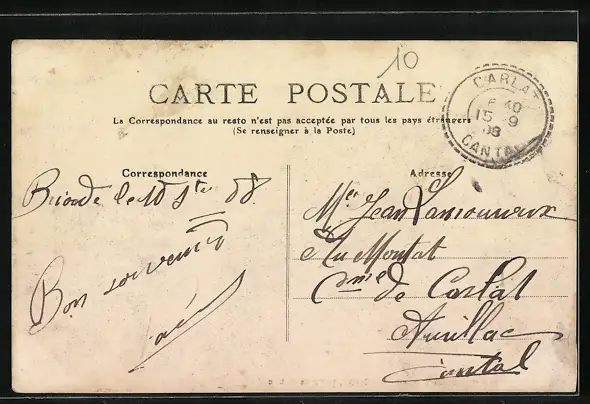 10
CARTE POSTALE
La Correspondance au resto n'est pas acceptée par tous les pays étrangers
(Se renseigner à la Poste)
CARLAT
15 9
08
CANTAL
Correspondance
Brioude le 10 Sbre 08
Bon souvenir
Adresse
Mr Jean Lamouroux
Au Montat
Cme de Carlat
Aurillac
Cantal